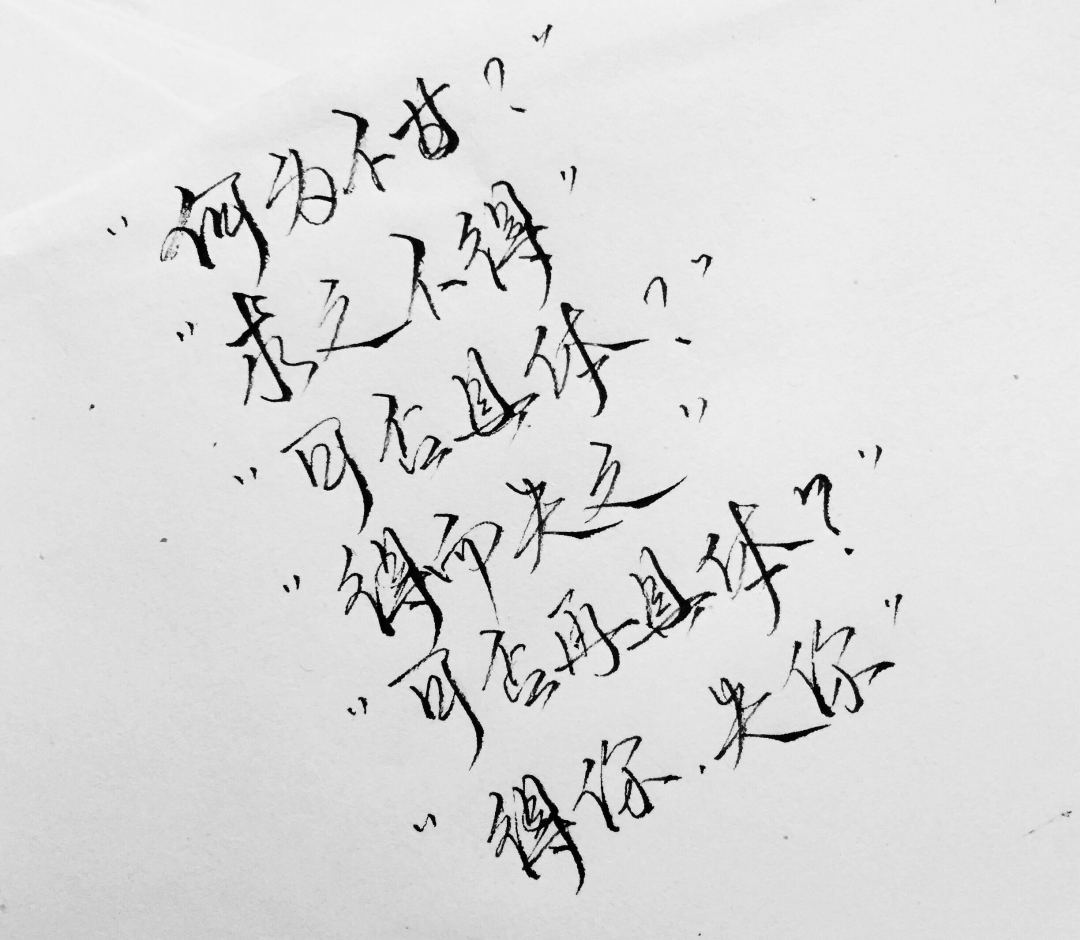 "何为不甘?"
"求之不得"
"可否具体?"
"得而失之"
"可否再具体?"
"得你.失你"